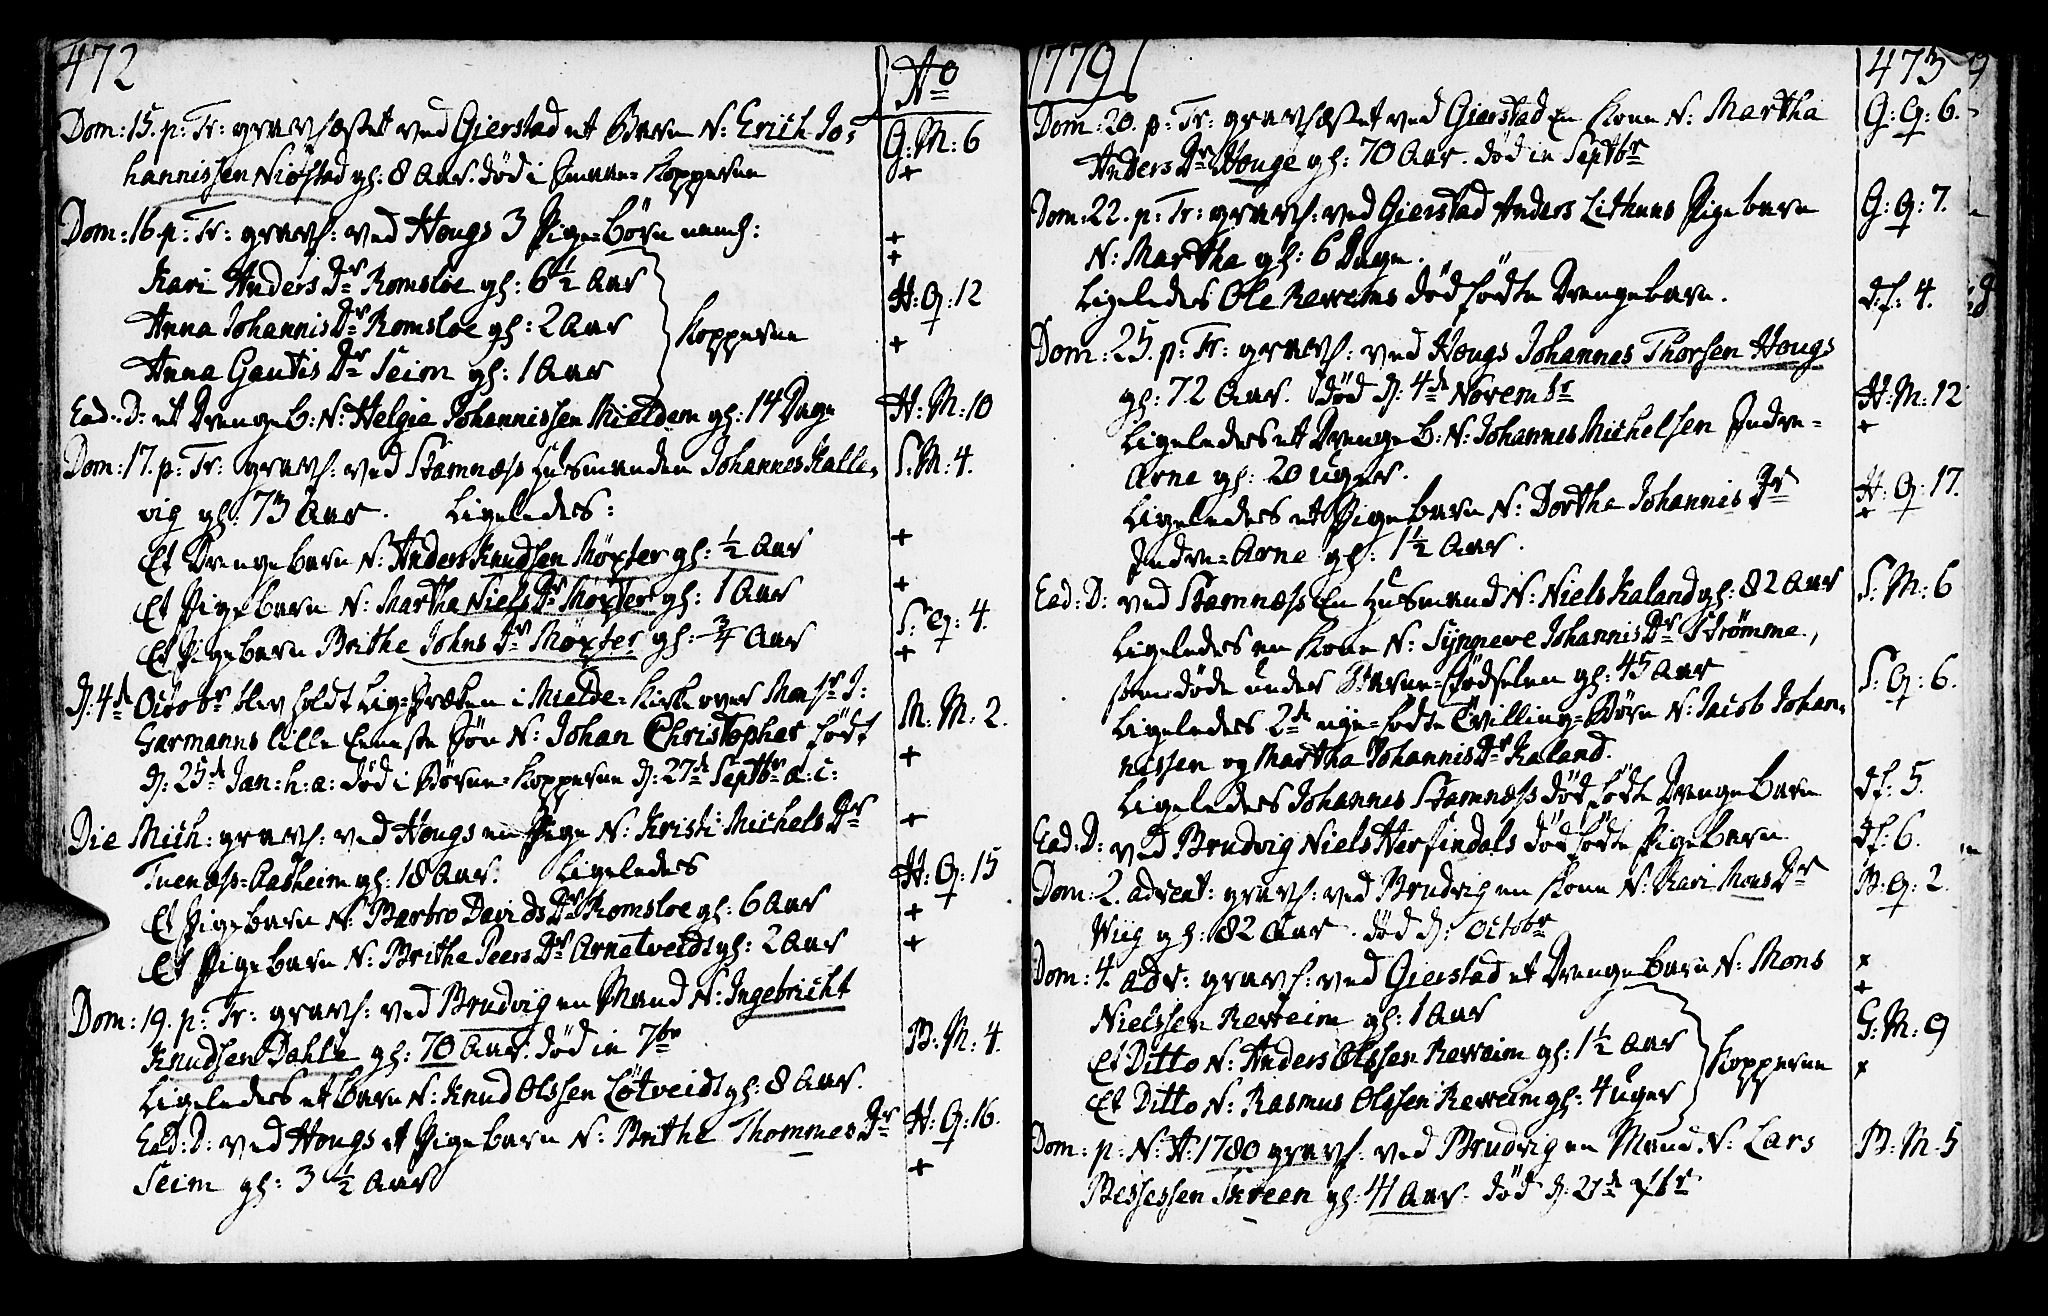 472
Ao
Dom: 15. p: Tr: gravfæstet ved Gierstad et Barn N: Erich Jo-
G: M: 6
hannissen Niøstad gl: 8 Aar. død i Kopperne
+
Dom: 16 p: Tr: gravf: ved Hougs 3 Pige-Børn namL:
+
Kari Anders Dr Romsloe gl: 6½ Aar
+
H: Q: 12
Anna Johannis Dr Romsloe gl: 2 Aar
Kopperne
+
Anna Gautis Dr Seim gl: 1 Aar
Ead: D: et Drengeb: N: Helgie Johannissen Mieldem gl: 14 Dage
H: M: 10
Dom: 17. p: Tr: gravf: ved Stamnæss Huusmanden Johannes Kalle-
S: M: 4.
vig gl: 73 Aar. Ligeledes:
Et Drengebarn N: Anders Knudsen Møxter gl: ½ Aar
+
Et Pigebarn N: Martha Niels Dr Møxter gl: 1 Aar
+
S: Q: 4.
Et Pigebarn Brithe Johns Dr Møxter gl: ¾ Aar
+
d: 4de Octobr blev holdt Lig-Præken i Mielde-Kirke over Monsr J:
Garmanns lille Eeneste Søn N: Johan Christopher født
M: M: 2.
d: 25de Jan: h: a: død i Børne-Kopperne d: 27de Septbr a: c:
+
Die Mich: gravf: ved Hougs en Pige N: Kristi Michels Dr
+
Tuenæss-Aasheim gl: 18 Aar. Ligeledes
H: Q: 15
Et Pigebarn N: Barbro Davids Dr Romsloe gl: 6 Aar
+
Et Pigebarn N: Brithe Peers Dr Arnetveidt gl: 2 Aar
+
Dom: 19. p: Tr: gravf: ved Brudvig en Mand N: Ingebricht
Knudsen Dahle gl: 70 Aar. død in 7br
B: M: 4.
Ligeledes et barn N: Knud Olssen Løtveidt gl: 8 Aar.
Ead: D: ved Hougs et Pigebarn N: Brithe Thommes Dr
H: Q: 16.
Seim gl: 3½ Aar
+
1779
473
Dom: 20. p: Tr: gravfæstet ved Gierstad En Kone N: Martha
G: Q: 6.
Anders Dr Houge gl: 70 Aar. død in Septbr
Dom: 22. p: Tr: gravf: ved Gierstad Anders Lithuns Pigebarn
G: Q: 7.
N: Martha gl: 6 Dage.
Ligeledes Ole Rewems dødfødte Drengebarn.
df: 4.
Dom: 25. p: Tr: gravf: ved Hougs Johannes Thorsen Hougs
gl: 72 Aar. død d: 4de Novembr
H: M: 12
Ligeledes et Drengeb: N: Johannes Michelsen Indre-
+
Arne gl: 20 uger.
Ligeledes et Pigebarn N: Dorthe Johannis Dr
H: Q: 17.
+
Indre-Arne gl: 1½ Aar.
Ead: D: ved Stamnæss En Huusmand N: Niels Kaland gl: 82 Aar
S: M: 6
Ligeledes en Kone N: Synneve Johannis Dr Strømme,
som døde under Barne-fødselen gl: 45 Aar
S: Q: 6.
Ligeledes 2de nye-fødte Tvilling-Børn N: Jacob Johan-
nissen og Martha Johannis Dr Kaland.
Ligeledes Johannes Stamnæss dødfødte Drengebarn
df: 5.
Ead: D: ved Brudvig Niels Herfindals dødfødte Pigebarn
df: 6.
Dom: 2. advent: gravf: ved Brudvig en Kone N: Kari Mons Dr
B: Q: 2.
Wiig gl: 82 Aar. død d: Octobr
Dom: 4. adv: gravf: ved Gierstad et Drengebarn N: Mons
x
+
Nielssen Reweim gl: 1 Aar
G: M: 9
Et Ditto N: Anders Olssen Reweim gl: 1½ Aar
Kopperne
x
Et Ditto N: Rasmus Olssen Reweim gl: 4 uger
Dom: p: N: A: 1780 gravf: ved Brudvig en Mand N: Lars
B: M: 5
Bessessen Skreen gl: 41 Aar. død d: 27de